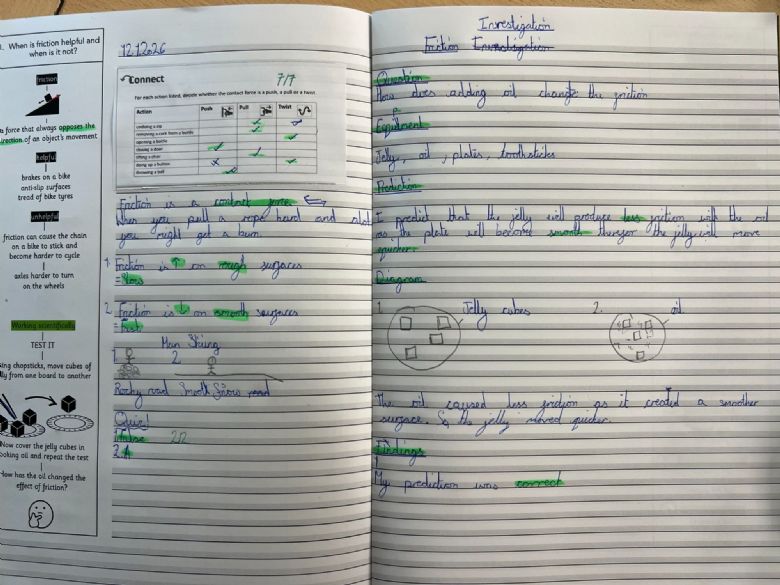 1. When is friction helpful and
when is it not?
friction
a force that always opposes the
direction of an object's movement
helpful
brakes on a bike
anti-slip surfaces
tread of bike tyres
unhelpful
friction can cause the chain
on a bike to stick and
become harder to cycle
axles harder to turn
on the wheels
Working scientifically
TEST IT
Using chopsticks, move cubes of
jelly from one board to another
Now cover the jelly cubes in
cooking oil and repeat the test
How has the oil changed the
effect of friction?
12.1.2026
Connect
7/7
For each action listed, decide whether the contact force is a push, a pull or a twist.
Action Push Pull Twist
undoing a zip
removing a cork from a bottle
opening a bottle
closing a door
lifting a chair
doing up a button
throwing a ball
Friction is a contact force
When you pull a rope hard and
you might get a burn.
1. Friction is ↑ on rough surfaces
= Slow
2. Friction is ↓ on smooth surfaces
= Fast
Man Skiing
1. 2.
Rocky road Smooth Snow road
Quiz!
1. False 2/2
2. A
Investigation
Friction Investigation
Question
How does adding oil change the friction
Equitment
Jelly, oil, plates, toothsticks
Prediction
I predict that the jelly will produce less friction with the oil
as the plate will become smooth therefor the jelly will move
quicker.
Diagram
1. Jelly cubes 2. oil
The oil caused less friction as it created a smoother
surface. So the jelly moved quicker.
Findings
My prediction was correct